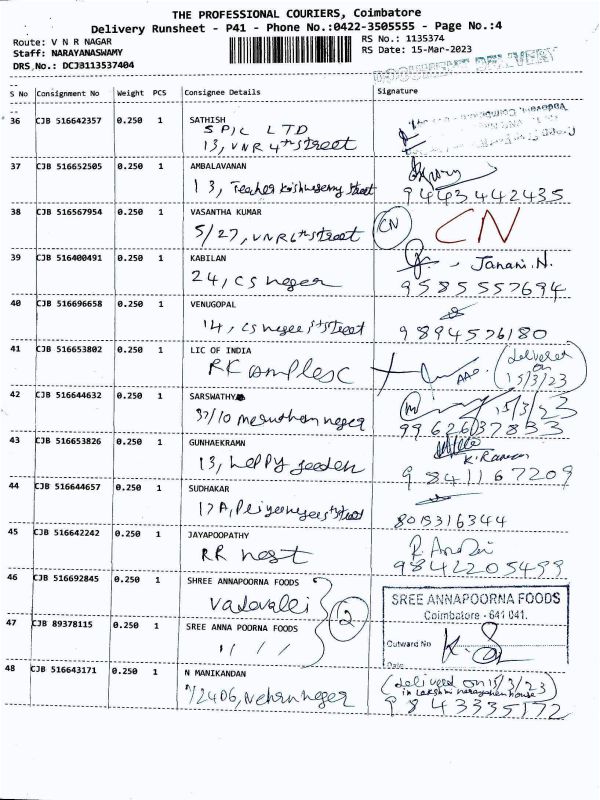 THE PROFESSIONAL COURIERS, Coimbatore
Delivery Runsheet - P41 - Phone No.:0422-3505555 - Page No.:4
Route: V N R NAGAR
RS No.: 1135374
Staff: NARAYANASWAMY
RS Date: 15-Mar-2023
DRS No.: DCJB113537404
DOCUMENT DELIVERY
S No Consignment No Weight PCS Consignee Details Signature
36 CJB 516642357 0.250 1 SATHISH
SPIC LTD
13, VNR 4th Street
37 CJB 516652505 0.250 1 AMBALAVANAN
13, Teacher street
9443442435
38 CJB 516567954 0.250 1 VASANTHA KUMAR
5/27, VNR 6th street
CN CN
39 CJB 516400491 0.250 1 KABILAN
24, CS neger
Janani.N.
9585557694
40 CJB 516696658 0.250 1 VENUGOPAL
14, CS street
9894576180
41 CJB 516653802 0.250 1 LIC OF INDIA
RK complesc
AAO
(delivered on 15/3/23)
42 CJB 516644632 0.250 1 SARSWATHY
37/10 neger
15/3/23
9962637833
43 CJB 516653826 0.250 1 GUNHAEKRAMN
13, Heppy
K. Raman
9841167209
44 CJB 516644657 0.250 1 SUDHAKAR
17A, street
8015316344
45 CJB 516642242 0.250 1 JAYAPOOPATHY
RR nest
9842205499
46 CJB 516692845 0.250 1 SHREE ANNAPOORNA FOODS
Vadavalli
2
SREE ANNAPOORNA FOODS
Coimbatore - 641 041.
47 CJB 89378115 0.250 1 SREE ANNA POORNA FOODS
Outward No
Date
48 CJB 516643171 0.250 1 N MANIKANDAN
2406, Nehru neger
(delivered on 15/3/23
in Lakshmi narayanan house)
9843335172